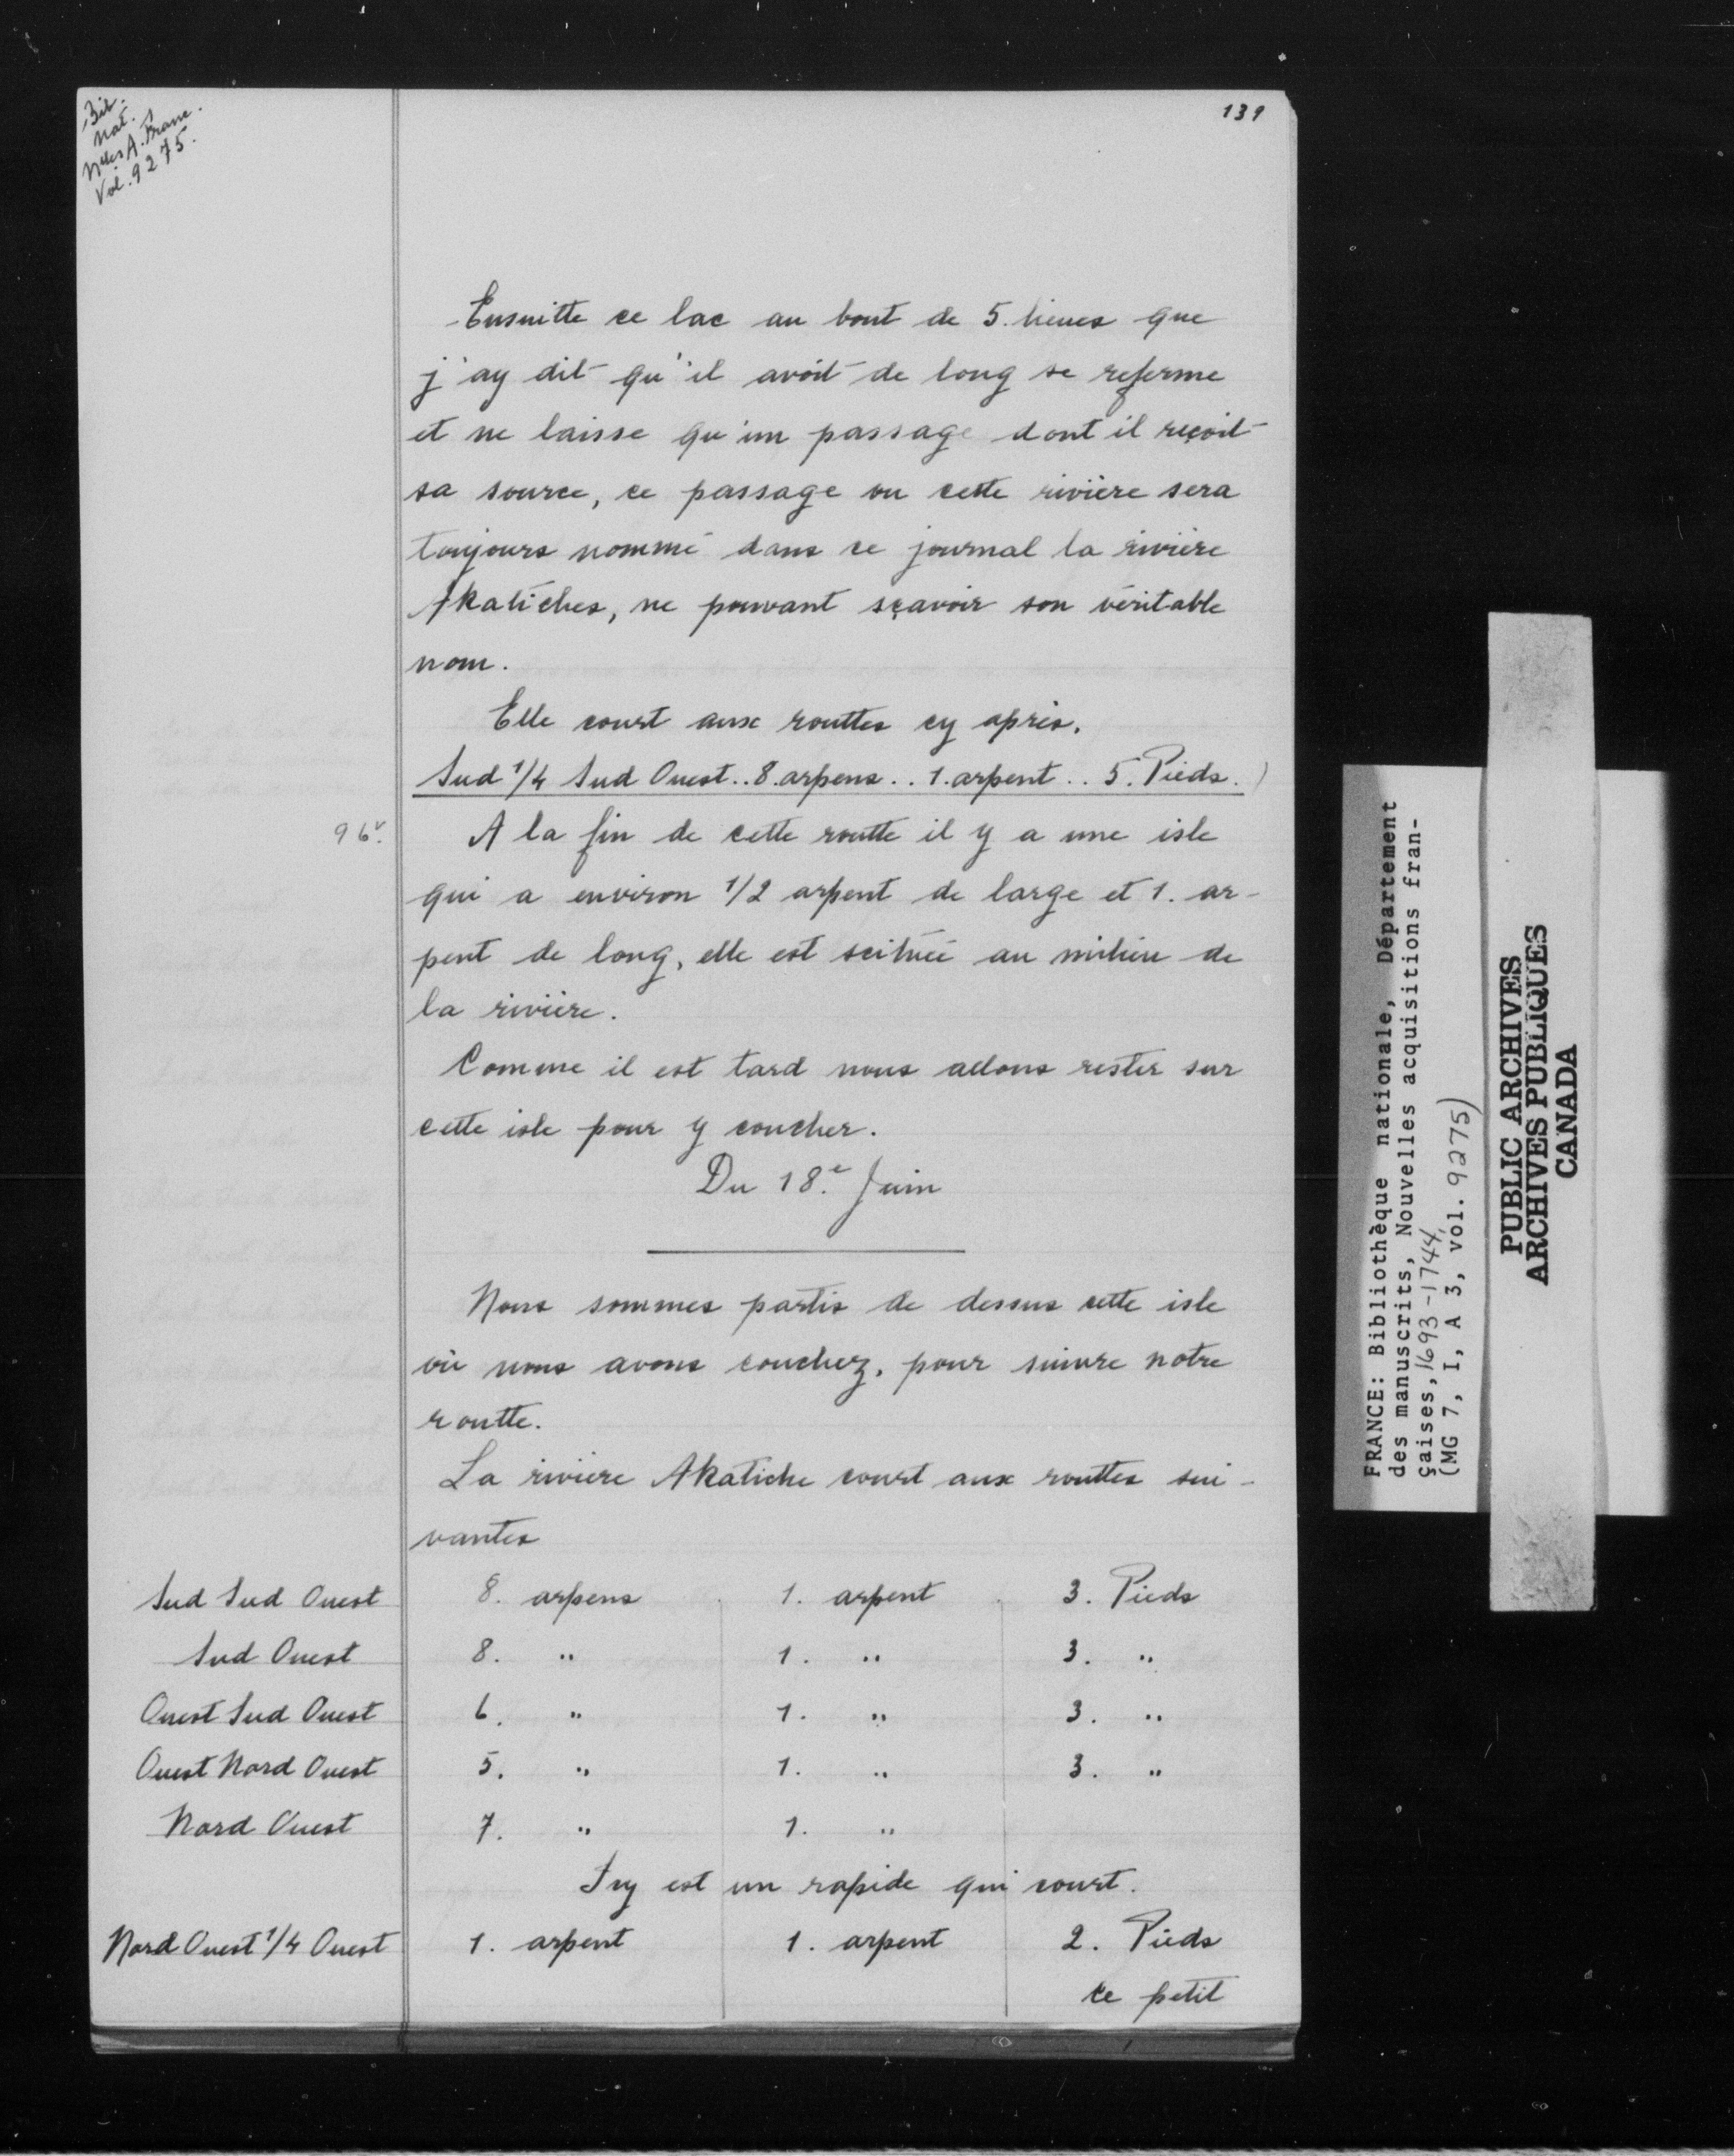 Bib.
nat.
Nles A. Franc.
Vol. 9275.
139
Ensuitte ce lac au bout de 5. lieues que
j'ay dit qu'il avoit de long se referme
et ne laisse qu'un passage dont il reçoit
sa source, ce passage ou cette rivière sera
toujours nommé dans ce journal la rivière
Akatiches, ne pouvant sçavoir son véritable
nom.
Elle court aux routtes cy après.
Sud 1/4 Sud Ouest.. 8. arpens.. 1. arpent.. 5. Pieds.
96v.
A la fin de cette routte il y a une isle
qui a environ 1/2 arpent de large et 1. ar-
pent de long, elle est scituée au milieu de
la rivière.
Comme il est tard nous allons rester sur
cette isle pour y coucher.
Du 18.e Juin
Nous sommes partis de dessus cette isle
où nous avons couchez, pour suivre notre
routte.
La riviere Akatiche court aux routtes sui-
vantes
Sud Sud Ouest 8. arpens 1. arpent 3. Pieds
Sud Ouest 8. " 1. " 3. "
Ouest Sud Ouest 6. " 1. " 3. "
Ouest Nord Ouest 5. " 1. " 3. "
Nord Ouest 7. " 1. "
Icy est un rapide qui court.
Nord Ouest 1/4 Ouest 1. arpent 1. arpent 2. Pieds
ce petit
FRANCE: Bibliothèque nationale, Département
des manuscrits, Nouvelles acquisitions fran-
çaises, 1693-1744,
(MG 7, I, A 3, vol. 9275)
PUBLIC ARCHIVES
ARCHIVES PUBLIQUES
CANADA